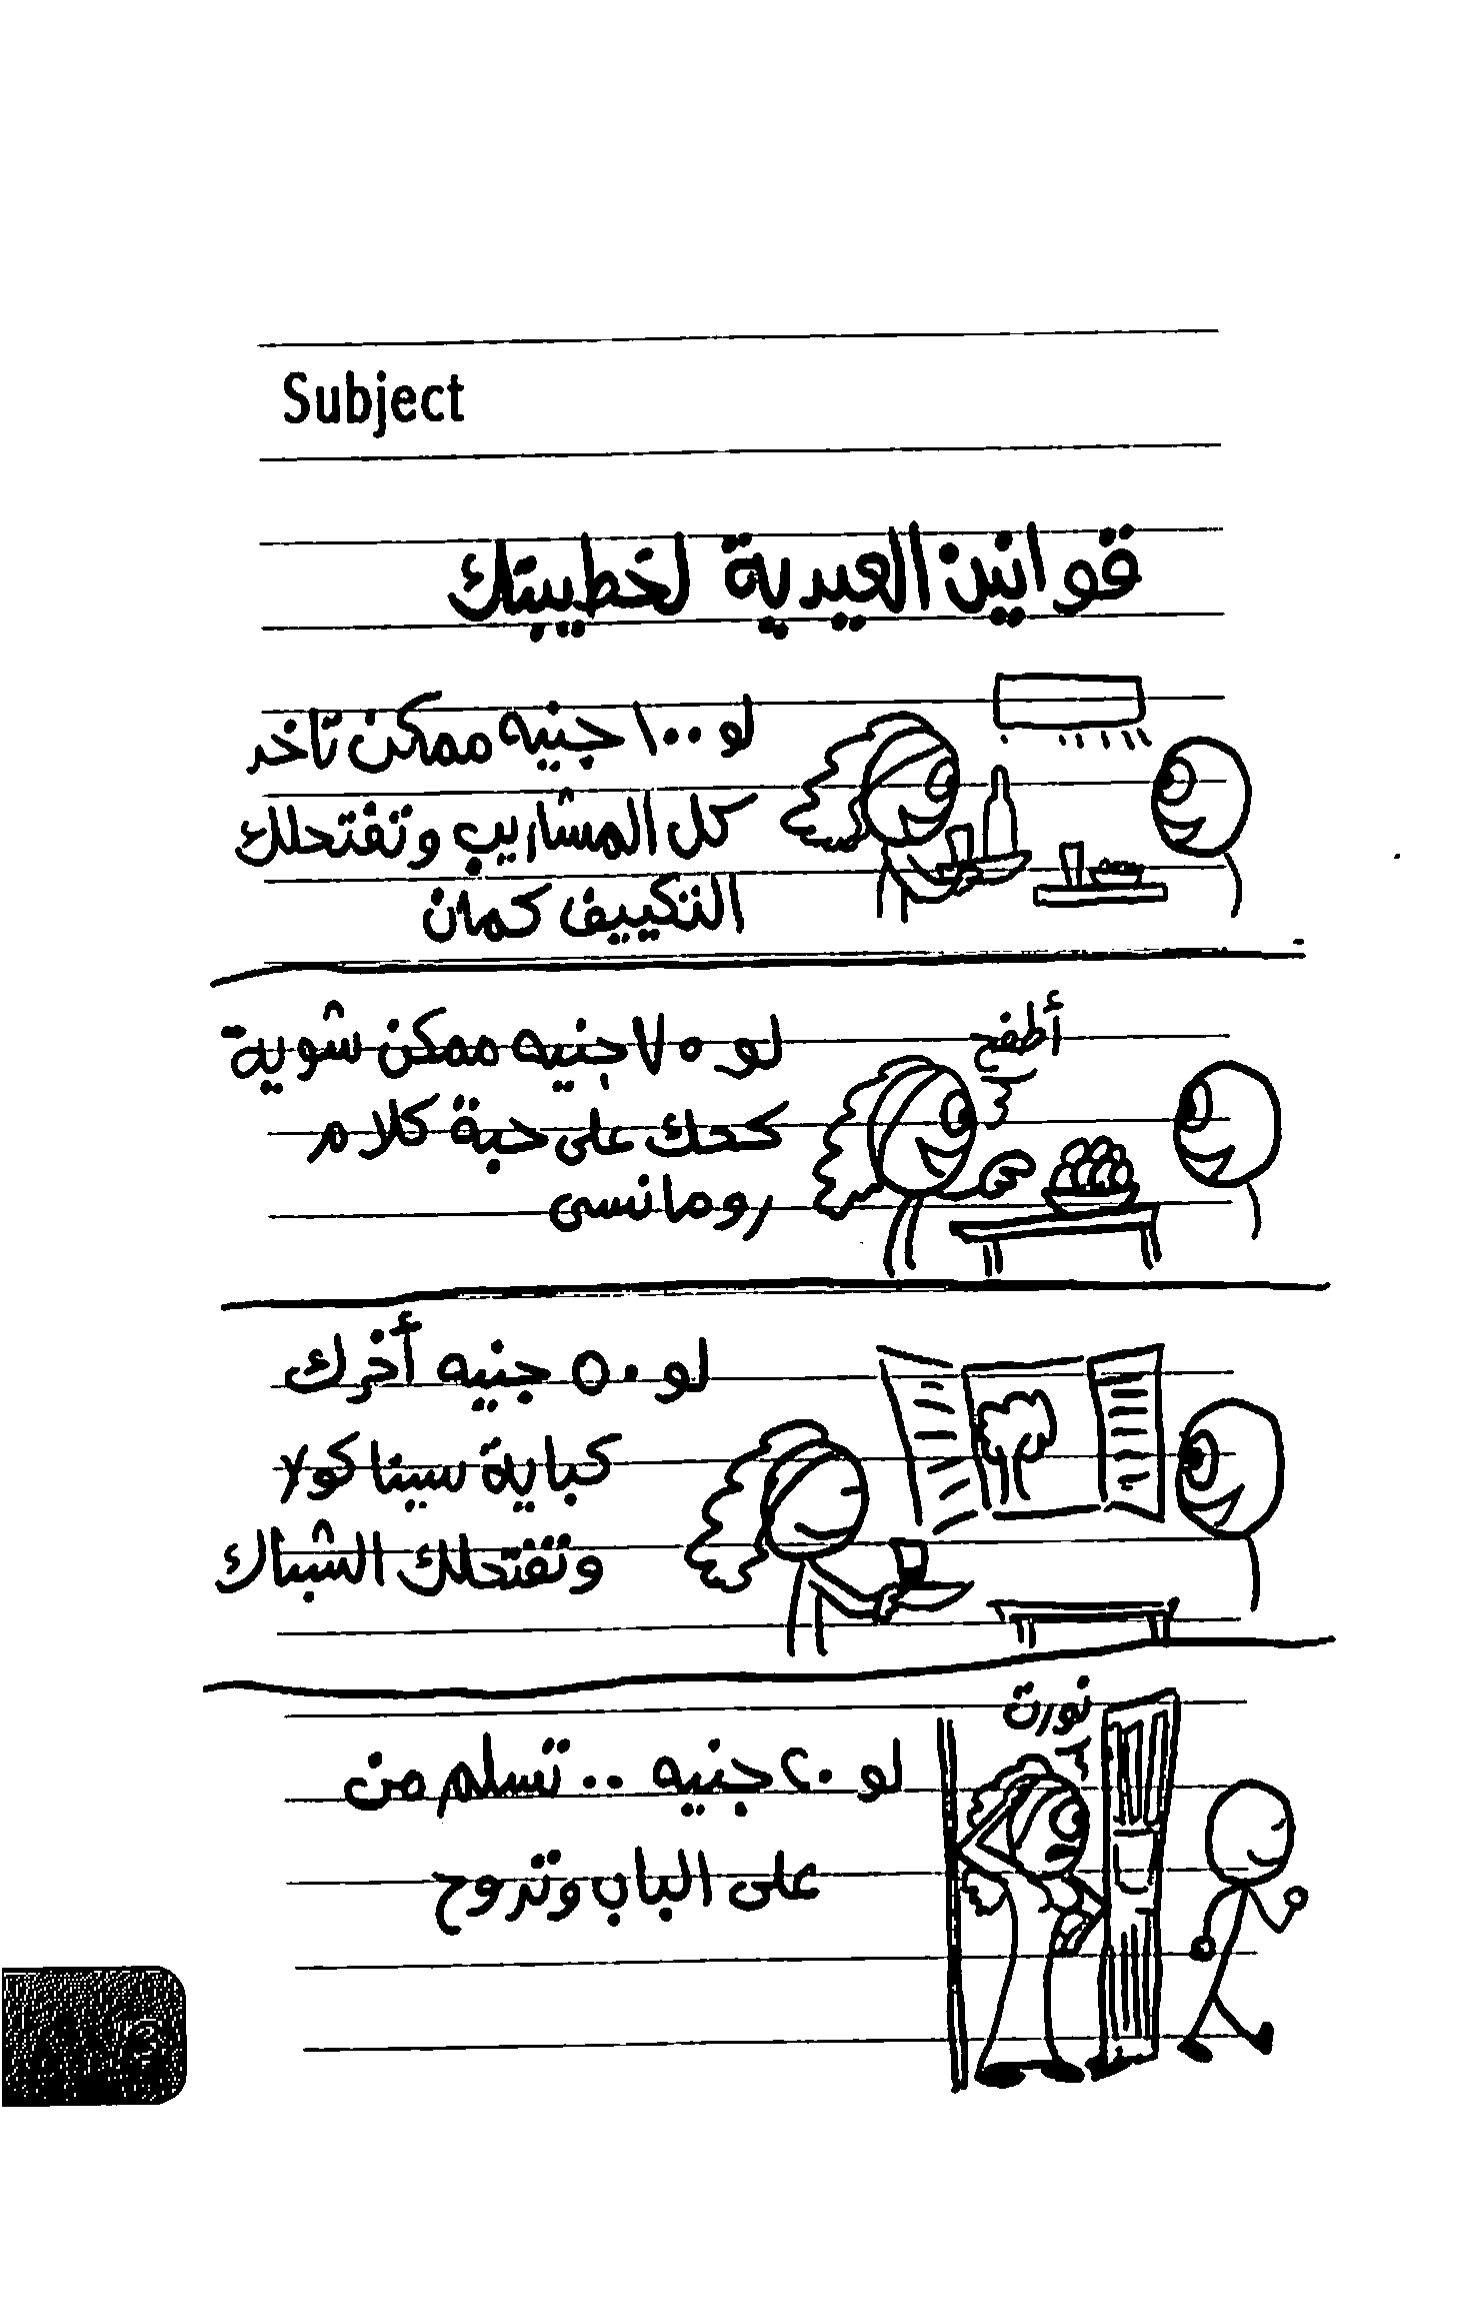 Subject
قوانين العيدية لخطيبتك
لو ١٠٠ جنيه ممكن تاخد
كل المشاريب وتفتحلك
التكييف كمان
لو ٧٥ جنيه ممكن شوية
كحك على حبة كلام
رومانسى
أطفح
لو ٥٠ جنيه أخرك
كباية سينا كولا
وتفتحلك الشباك
نورت
لو ٢٠ جنيه .. تسلم من
على الباب وتروح